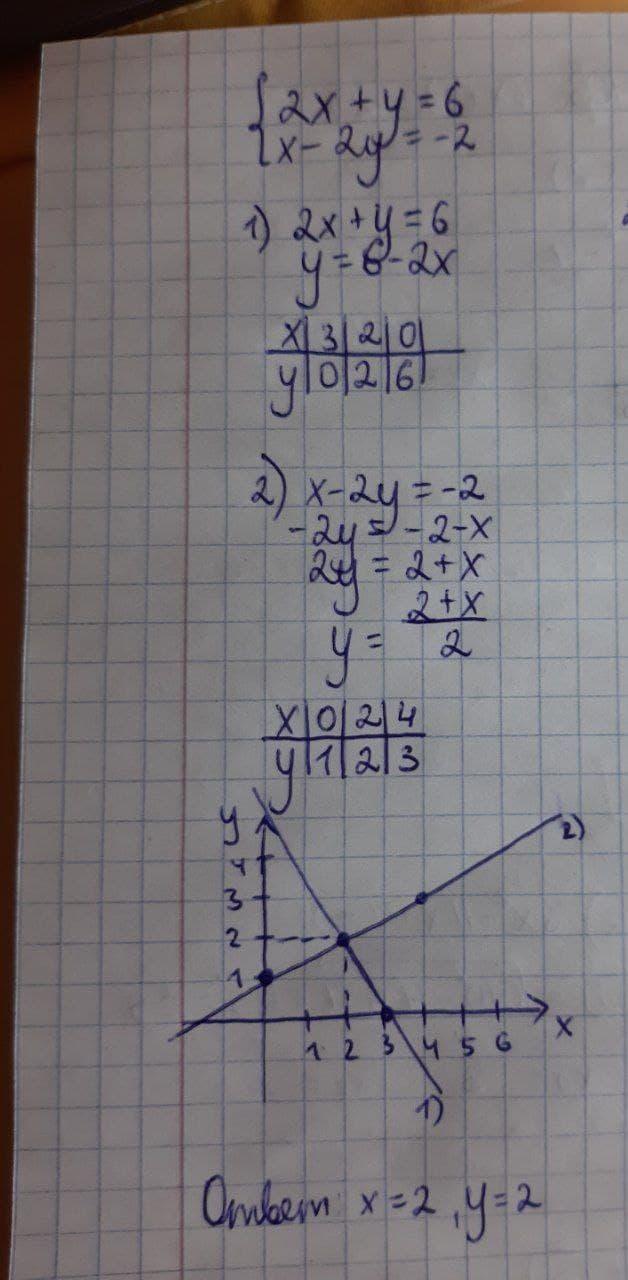 {2x + y = 6
x - 2y = -2
1) 2x + y = 6
y = 6 - 2x
x | 3 | 2 | 0 |
y | 0 | 2 | 6 |
2) x - 2y = -2
-2y = -2 - x
2y = 2 + x
y = (2 + x) / 2
x | 0 | 2 | 4
y | 1 | 2 | 3
y
2)
4
3
2
1
1 2 3 4 5 6 x
1)
Ответ: x = 2, y = 2